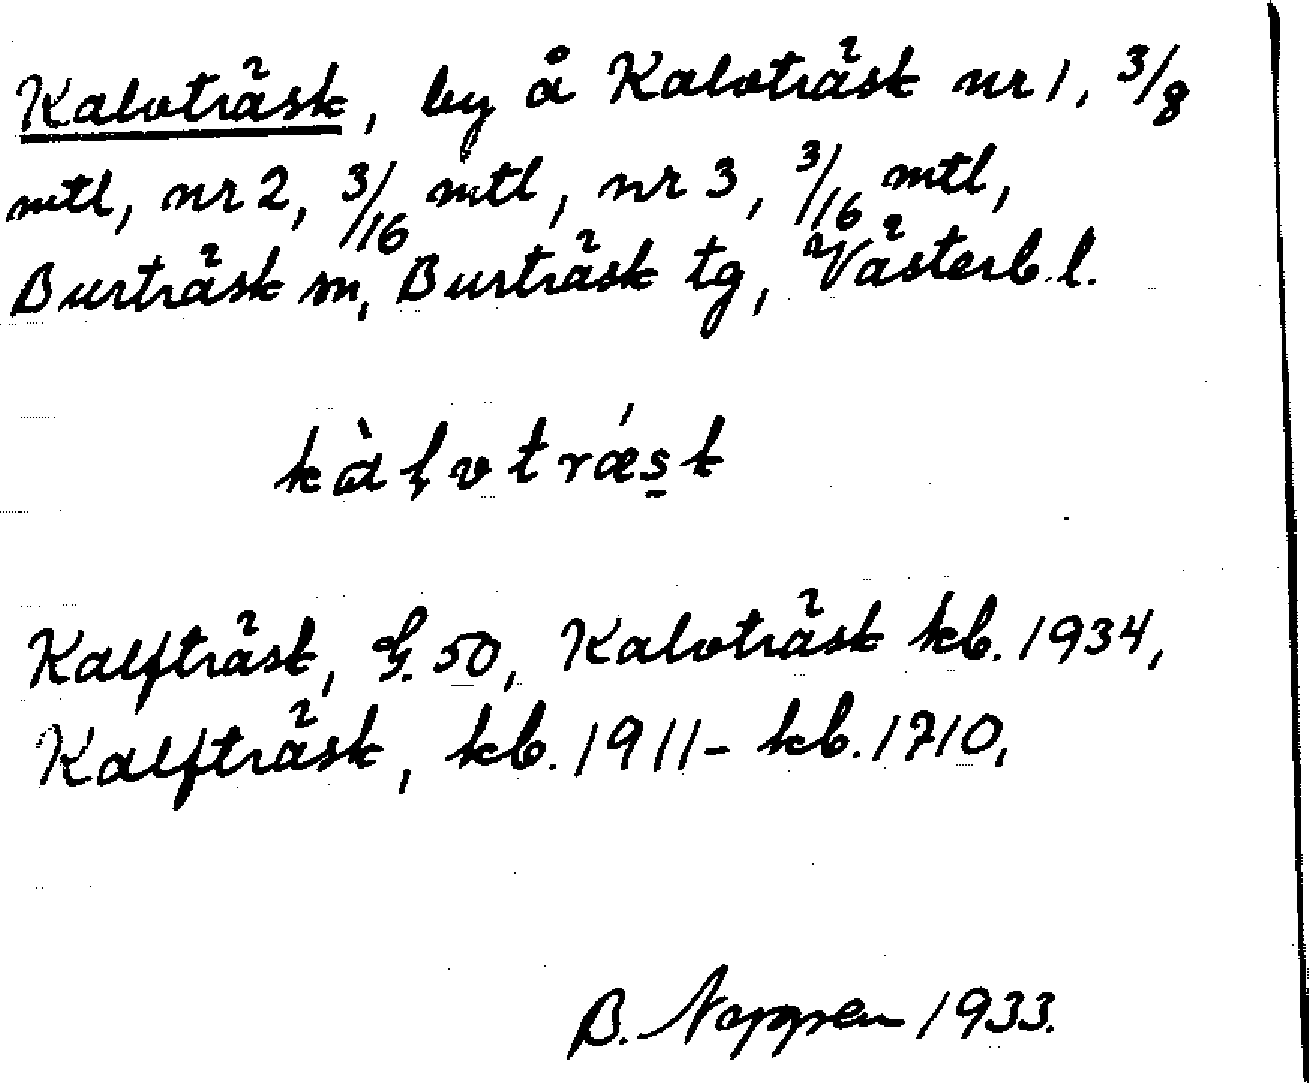 Kalvträsk, by å Kalvträsk nr 1, 3/8
mtl, nr 2, 3/16 mtl, nr 3, 3/16 mtl,
Burträsk sn, Burträsk tg, Västerb. l.
kàḷvtrǽsk
Kalfträsk, G. 50, Kalvträsk kb. 1934,
Kalfträsk, kb. 1911 - kb. 1710.
B. 1933.